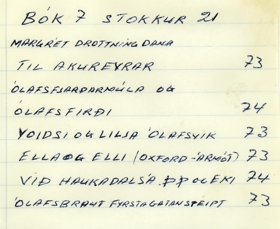 BÓK 7 STOKKUR 21
MARGRET DROTTNING DANA
TIL AKUREYRAR 73
ÓLAFSFJARÐARMÚLA OG
ÓLAFSFIRÐI 74
OG LILJA ÓLAFSVIK 73
ELLA OG ELLI (OXFORD-ÁRMÓT) 73
VIÐ HAUKADALSÁ ÞÞ OG EKI 74
ÓLAFSBRAUT FYRSTAGATAN STEIPT 73